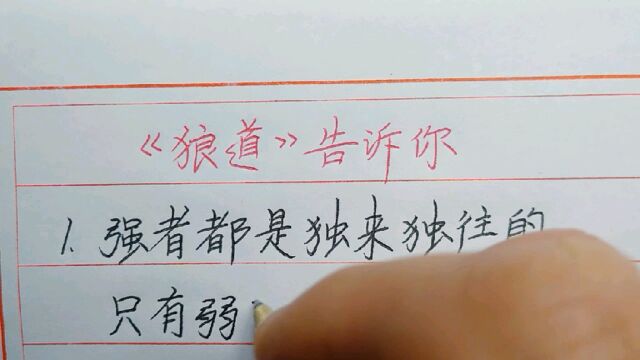 《狼道》告诉你
1.强者都是独来独往的
只有弱